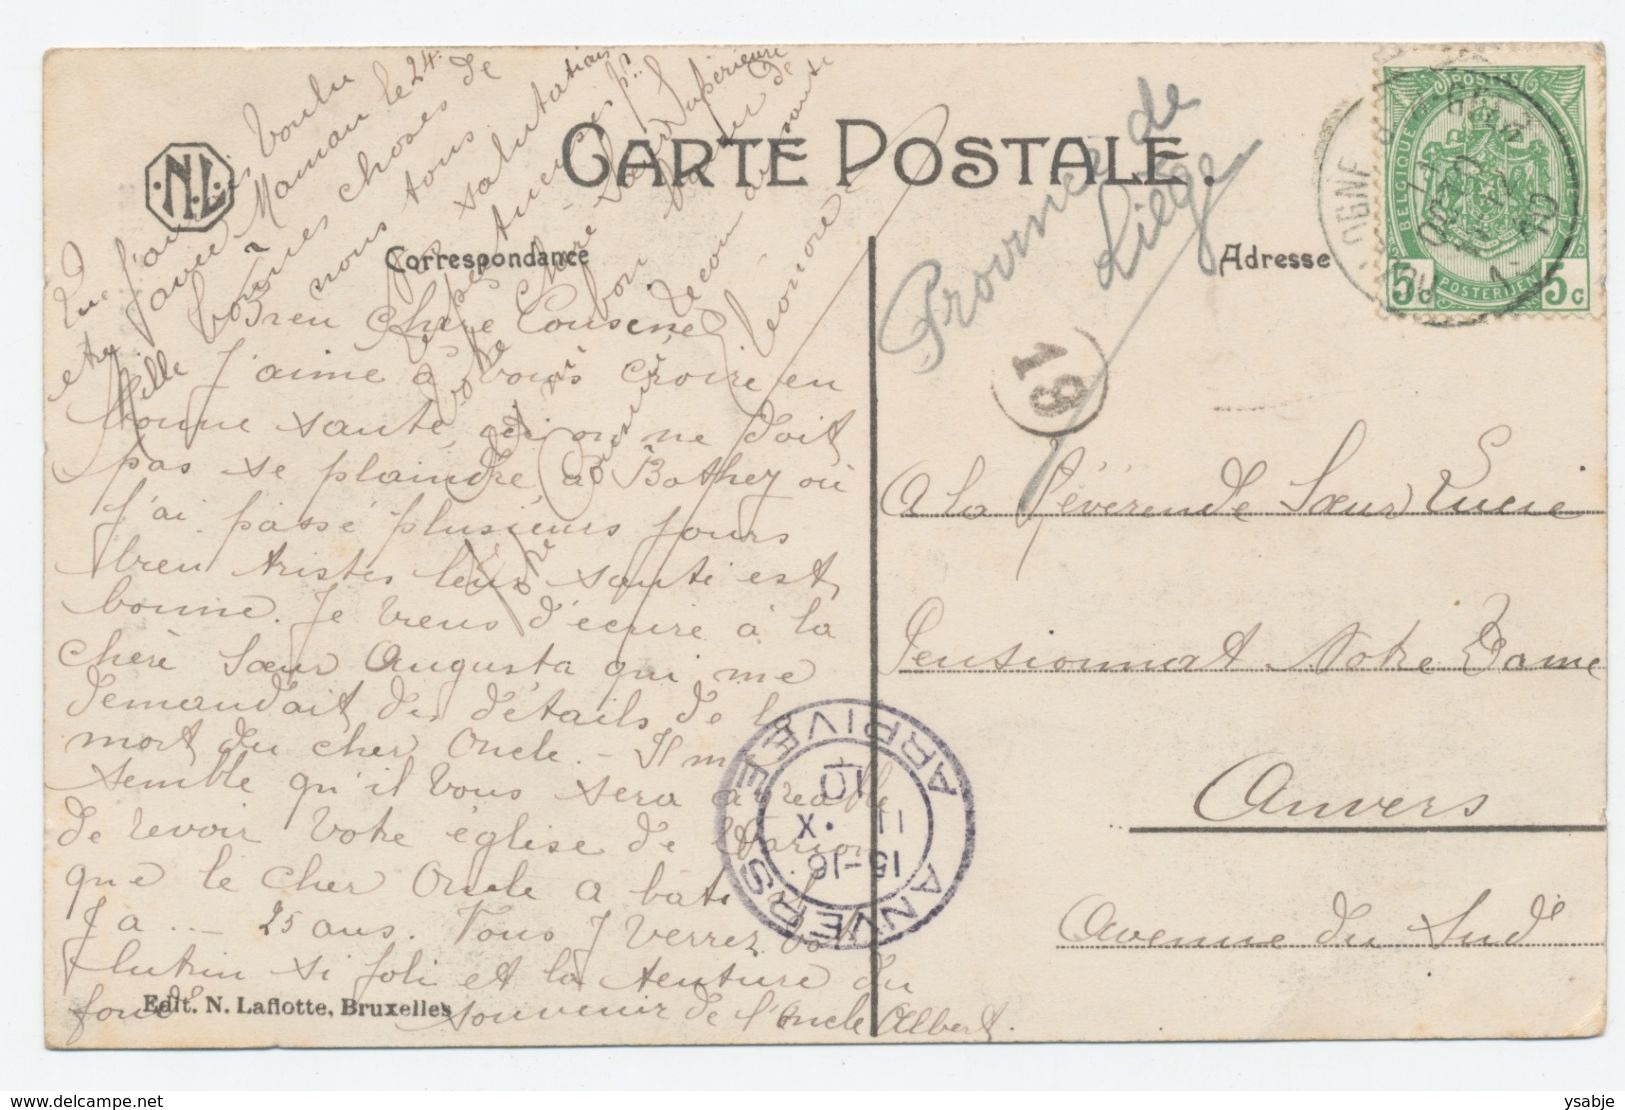 N.L.
CARTE POSTALE.
Correspondance
Adresse
Province de
Liège
19
BELGIQUE
POSTES
POSTERIJEN
5c
5c
ANVERS
15-16
11 . X
10
ARRIVÉE
que j'aurais voulu
être avec Maman le 24.
Mille bonnes choses de
nous tous
Bien Chère Cousine
J'aime à vous croire en
bonne santé, ici on ne doit
pas se plaindre, à Bothey où
j'ai passé plusieurs jours
bien tristes leur santé est
bonne. Je viens d'écrire à la
chère Sœur Augusta qui me
demandait des détails de la
mort du cher Oncle. - Il me
semble qu'il vous sera agréable
de revoir votre église de
que le cher Oncle a bâti il
y a ... - 25 ans. Vous y verrez
lutrin si joli et la tenture du
fond souvenir de l'Oncle Albert.
Léonore
A la Révérende Sœur Lucie
Pensionnat Notre Dame
Anvers
Avenue du Sud
Edit. N. Laflotte, Bruxelles
delcampe.net
ysabje